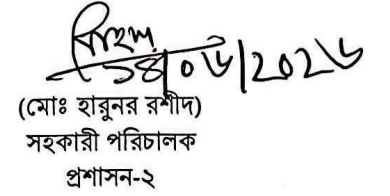 ১৪|০৬|২০২৬
(মোঃ হারুনর রশীদ)
সহকারী পরিচালক
প্রশাসন-২